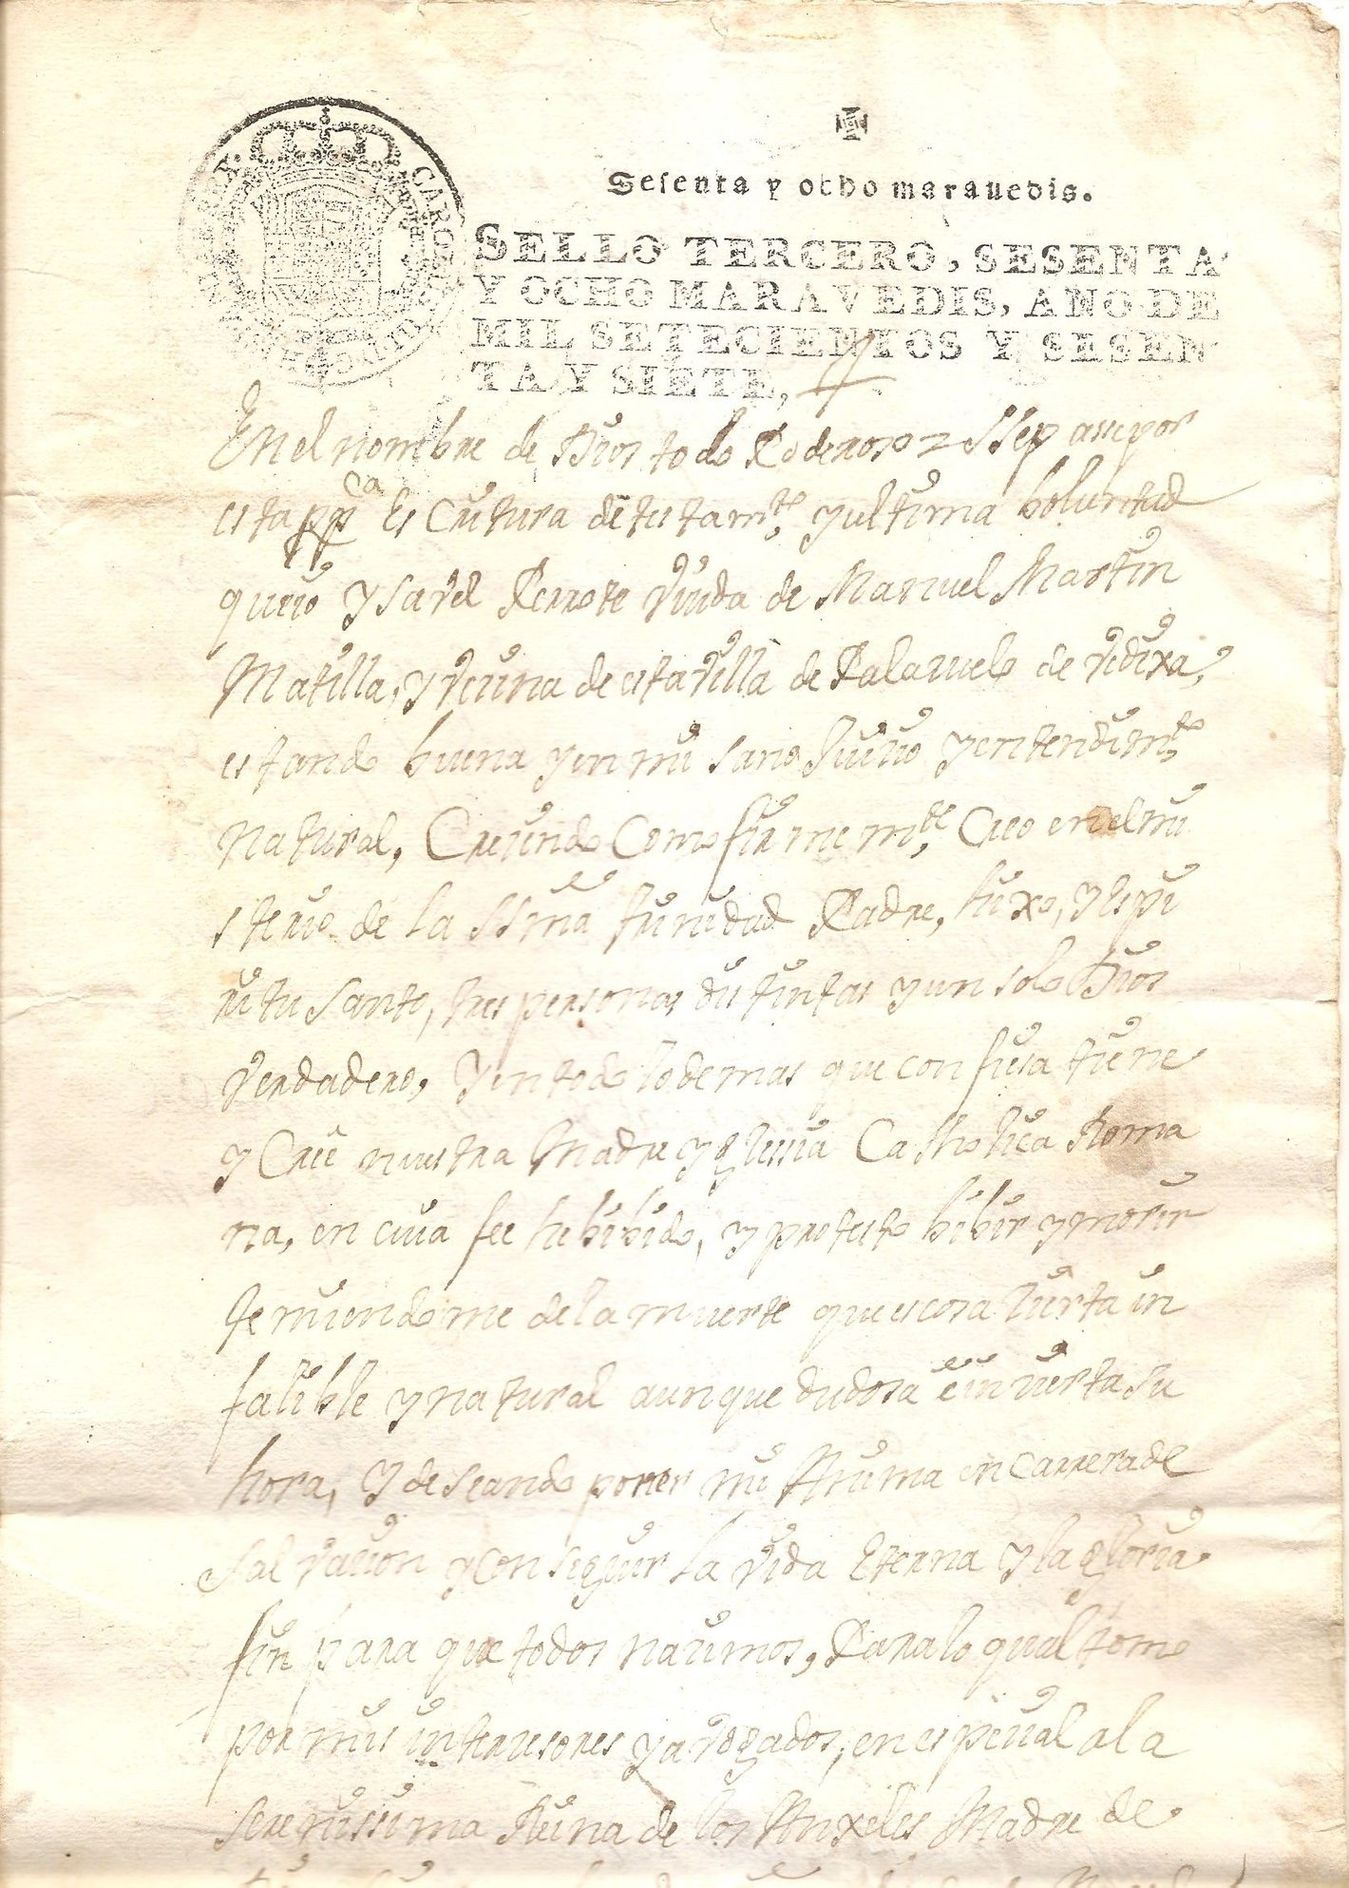 CAROLUS
Sesenta y ocho maravedis.
SELLO TERCERO, SESENTA
Y OCHO MARAVEDIS, AÑO DE
MIL SETECIENTOS Y SESEN-
TA Y SIETE,
En el nombre de Dios todo Poderoso = Ssepasse por
esta ppca escritura de testamto y ultima boluntad
que io Ysavel Perrote viuda de Manuel Martin
Matilla, y vecina de esta villa de Palazuelo de vedixa,
estando buena y en mi sano Juicio y entendimto
natural, Creiendo Como firmemte Creo en el mi
sterio de la ssma trinidad Padre, hixo, y espi
ritu santo, tres personas distintas y un solo Dios
verdadero, Y en todo lo demas que confiesa tiene
y Cree nuestra Madre yglesia Catholica Roma
na, en cuia fee he bibido, y protesto bibir y morir
temiendome de la muerte que es cosa cierta in
falible y natural aunque dudosa e incierta su
hora, Y deseando poner mi Anima en carrera de
salvacion y conseguir la vida Eterna y la gloria
fin para que todos nacimos, Para lo qual tomo
por mis intersesores y avogados, en especial a la
serenissima Reina de los Anxeles Madre de